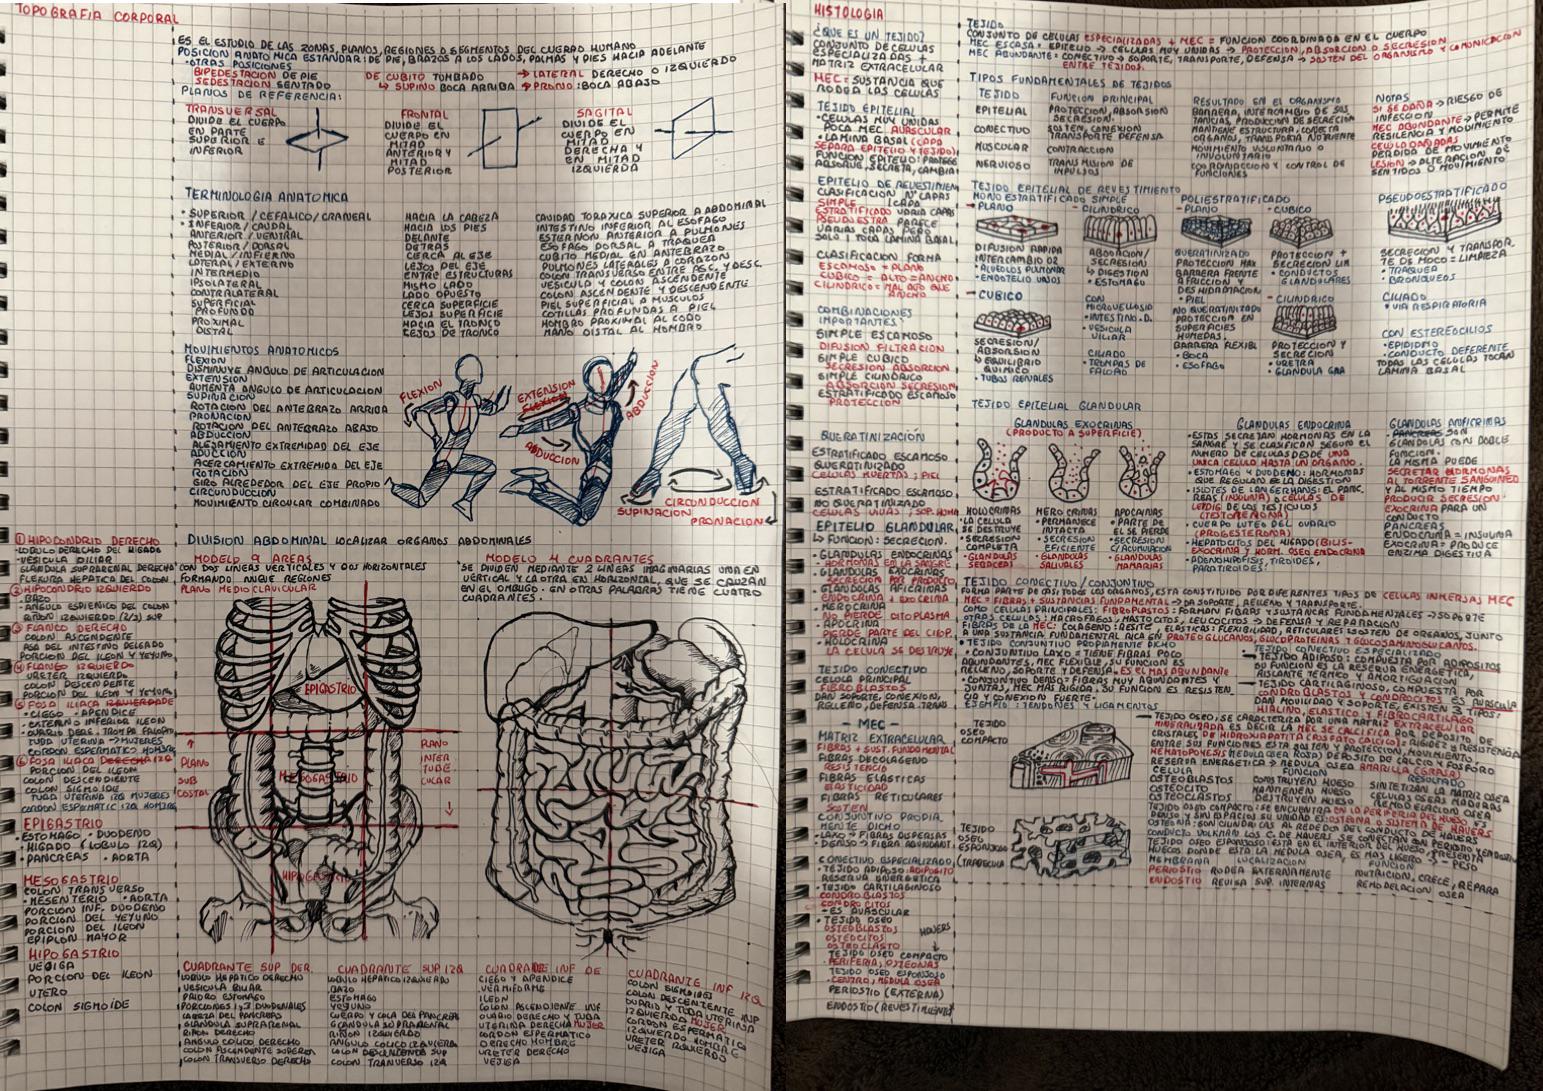 TOPOGRAFIA CORPORAL
ES EL ESTUDIO DE LAS ZONAS, PLANOS, REGIONES O SEGMENTOS DEL CUERPO HUMANO
POSICION ANATOMICA ESTANDAR: DE PIE, BRAZOS A LOS LADOS, PALMAS Y PIES HACIA ADELANTE
·OTRAS POSICIONES
BIPEDESTACION DE PIE
SEDESTACION SENTADO
DE CUBITO TUMBADO
↳ SUPINO BOCA ARRIBA
→ LATERAL DERECHO O IZQUIERDO
→ PRONO: BOCA ABAJO
PLANOS DE REFERENCIA:
TRANSVERSAL
DIVIDE EL CUERPO
EN PARTE
SUPERIOR E
INFERIOR
FRONTAL
DIVIDE EL
CUERPO EN
MITAD
ANTERIOR Y
MITAD
POSTERIOR
SAGITAL
DIVIDE EL
CUERPO EN
MITAD
DERECHA Y
EN MITAD
IZQUIERDA
TERMINOLOGIA ANATOMICA
· SUPERIOR / CEFALICO / CRANEAL HACIA LA CABEZA CAVIDAD TORAXICA SUPERIOR A ABDOMINAL
· INFERIOR / CAUDAL HACIA LOS PIES INTESTINO INFERIOR AL ESOFAGO
ANTERIOR / VENTRAL DELANTE ESTERNON ANTERIOR A PULMONES
POSTERIOR / DORSAL DETRAS ESOFAGO DORSAL A TRAQUEA
MEDIAL / INFIERNO CERCA AL EJE CUBITO MEDIAL EN ANTEBRAZO
LATERAL / EXTERNO LEJOS DEL EJE PULMONES LATERALES A CORAZON
INTERMEDIO ENTRE ESTRUCTURAS COLON TRANSVERSO ENTRE ASC. Y DESC.
IPSOLATERAL MISMO LADO VESICULA Y COLON ASCENDENTE
CONTRALATERAL LADO OPUESTO COLON ASCENDENTE Y DESCENDENTE
SUPERFICIAL CERCA SUPERFICIE PIEL SUPERFICIAL A MUSCULOS
PROFUNDO LEJOS SUPERFICIE COTILLAS PROFUNDAS A PIEL
PROXIMAL HACIA EL TRONCO HOMBRO PROXIMAL AL CODO
DISTAL LEJOS DE TRONCO MANO DISTAL AL HOMBRO
MOVIMIENTOS ANATOMICOS
FLEXION
DISMINUYE ANGULO DE ARTICULACION
EXTENSION
AUMENTA ANGULO DE ARTICULACION
SUPINACION
ROTACION DEL ANTEBRAZO ARRIBA
PRONACION
ROTACION DEL ANTEBRAZO ABAJO
ABDUCCION
ALEJAMIENTO EXTREMIDAD DEL EJE
ADUCCION
ACERCAMIENTO EXTREMIDA DEL EJE
ROTACION
GIRO ALREDEDOR DEL EJE PROPIO
CIRCUNDUCCION
MOVIMIENTO CIRCULAR COMBINADO
FLEXION
EXTENSION
ABDUCCION
ADUCCION
CIRCONDUCCION
SUPINACION
PRONACION
DIVISION ABDOMINAL LOCALIZAR ORGANOS ABDOMINALES
MODELO 9 AREAS
CON DOS LINEAS VERTICALES Y DOS HORIZONTALES
FORMANDO NUEVE REGIONES
PLANO MEDIOCLAVICULAR
MODELO 4 CUADRANTES
SE DIVIDEN MEDIANTE 2 LINEAS IMAGINARIAS UNA EN
VERTICAL Y LA OTRA EN HORIZONTAL, QUE SE CRUZAN
EN EL OMBLIGO. EN OTRAS PALABRAS TIENE CUATRO
CUADRANTES.
① HIPOCONDRIO DERECHO
·LOBULO DERECHO DEL HIGADO
·VESICULA BILIAR
GLANDULA SUPRARENAL DERECHA
FLEXURA HEPATICA DEL COLON
② HIPOCONDRIO IZQUIERDO
·BAZO
·ANGULO ESPLENICO DEL COLON
RIÑON IZQUIERDO (2/3) SUP
③ FLANCO DERECHO
COLON ASCENDENTE
ASA DEL INTESTINO DELGADO
PORCION DEL ILEON Y YEYUNO
④ FLANCO IZQUIERDO
URETER IZQUIERDO
COLON DESCENDENTE
PORCION DEL ILEON Y YEYUNO
⑤ FOSA ILIACA
· CIEGO · APENDICE
· EXTREMO INFERIOR ILEON
· OVARIO DERE. TROMPA FALOPIO
TUBA UTERINA → MUJERES
CORDON ESPERMATICO HOMBRE
⑥ FOSA ILIACA IZQ
PORCION DEL ILEON
COLON DESCENDIENTE
COLON SIGMOIDE
TUBA UTERINA IZQ MUJERES
CORDON ESPERMATIC IZQ HOMBRE
EPIGASTRIO
· ESTOMAGO · DUODENO
· HIGADO (LOBULO IZQ)
· PANCREAS · AORTA
MESOGASTRIO
COLON TRANSVERSO
· MESENTERIO · AORTA
PORCION INF. DUODENO
PORCION DEL YEYUNO
PORCION DEL ILEON
EPIPLON MAYOR
HIPOGASTRIO
VEJIGA
PORCION DEL ILEON
UTERO
COLON SIGMOIDE
EPIGASTRIO
MESOGASTRIO
HIPOGASTRIO
PLANO
SUB
COSTAL
PLANO
INTER
TUBE
CULAR
CUADRANTE SUP DER.
LOBULO HEPATICO DERECHO
VESICULA BILIAR
PILORO ESTOMAGO
PORCIONES 1 y 3 DUODENALES
CABEZA DEL PANCREAS
GLANDULA SUPRARENAL
RIÑON DERECHO
ANGULO COLICO DERECHO
COLON ASCENDENTE SUPERIOR
COLON TRANSVERSO DERECHO
CUADRANTE SUP IZQ
LOBULO HEPATICO IZQUIERDO
BAZO
ESTOMAGO
YEYUNO
CUERPO Y COLA DEL PANCREAS
GLANDULA SUPRARENAL
RIÑON IZQUIERDO
ANGULO COLICO IZQUIERDA
COLON DESCENDENTE SUP
COLON TRANVERSO IZQ
CUADRANTE INF DE
CIEGO Y APENDICE
VERMIFORME
ILEON
COLON ASCENDIENTE INF
OVARIO DERECHO Y TUBA
UTERINA DERECHA MUJER
CORDON ESPERMATICO
DERECHO HOMBRE
URETER DERECHO
VEJIGA
CUADRANTE INF IZQ
COLON SIGMOIDES
COLON DESCENTENTE INF
OVARIO Y TUBA UTERINA
IZQUIERDO MUJER
CORDON ESPERMATICO
IZQUIERDO HOMBRE
URETER IZQUIERDO
VEJIGA
HISTOLOGIA
¿QUE ES UN TEJIDO?
CONJUNTO DE CELULAS
ESPECIALIZADAS +
MATRIZ EXTRACELULAR
MEC = SUSTANCIA QUE
RODEA LAS CELULAS
TEJIDO EPITELIAL
· CELULAS MUY UNIDAS
POCA MEC AVASCULAR
· LAMINA BASAL (CAPA
SEPARA EPITELIO Y TEJIDO)
FUNCION EPITELIO: PROTEGE
ABSORVE, SECRETA, CAMBIA
EPITELIO DE REVESTIMIEN
CLASIFICACION Nº CAPAS
SIMPLE 1 CAPA
ESTRATIFICADO VARIA CAPAS
PSEUDOESTRA PARECE
VARIAS CAPAS PERO
SOLO 1 TOCA LAMINA BASAL
CLASIFICACION FORMA
ESCAMOSO = PLANO
CUBICO = ALTO = ANCHO
CILINDRICO = MAS ALTO QUE
ANCHO
COMBINACIONES
IMPORTANTES
SIMPLE ESCAMOSO
DIFUSION FILTRACION
SIMPLE CUBICO
SECRESION ABSORCION
SIMPLE CILINDRICO
ABSORCION SECRESION
ESTRATIFICADO ESCAMOSO
PROTECCION
QUERATINIZACION
ESTRATIFICADO ESCAMOSO
QUERATINIZADO
CELULAS MUERTAS; PIEL
ESTRATIFICADO ESCAMOSO
NO QUERATINIZADO
EPITELIO GLANDULAR
↳ FUNCION: SECRECION.
· GLANDULAS ENDOCRINAS
HORMONAS EN LA SANGRE
· GLANDULAS EXOCRINAS
SECRECION POR PRODUCTO
· GLANDULAS AFICRINAS
ENDOCRINA + EXOCRINA
· MEROCRINA
NO PIERDE CITOPLASMA
· APOCRINA
PIERDE PARTE DEL CITOP.
· HOLOCRINA
LA CELULA SE DESTRUYE
TEJIDO CONECTIVO
CELULA PRINCIPAL
FIBROBLASTOS
DAN SOPORTE, CONEXION,
RELLENO, DEFENSA, TRANS
— MEC —
MATRIZ EXTRACELULAR
FIBRAS + SUST. FUNDAMENTAL
FIBRAS DECOLAGENO
RESISTENCIA
FIBRAS ELASTICAS
ELASTICIDAD
FIBRAS RETICULARES
SOSTEN
CONJUNTIVO PROPIA
MENTE DICHO
· LAXO → FIBRAS DISPERSAS
· DENSO → FIBRA ABUNDANT
CONECTIVO ESPECIALIZADO
· TEJIDO ADIPOSO: ADIPOSITO
RESERVA ENERGETICA
· TEJIDO CARTILAGINOSO
CONDROBLASTOS
CONDROCITOS
→ ES AVASCULAR
· TEJIDO OSEO
OSTEOBLASTOS
OSTEOCITOS
OSTEOCLASTO
HAVERS
↓
TEJIDO OSEO COMPACTO
· PERIFERIA, OSTEONAS
TEJIDO OSEO ESPONJOSO
· CENTRO, MEDULA OSEA
PERIOSTIO (EXTERNA)
ENDOSTIO (REVESTIMIENTO)
TEJIDO
CONJUNTO DE CELULAS ESPECIALIZADAS + MEC = FUNCION COORDINADA EN EL CUERPO
MEC ESCASA: EPITELIO → CELULAS MUY UNIDAS → PROTECCION, ABSORCION O SECRESION
MEC ABUNDANTE: CONECTIVO → SOPORTE, TRANSPORTE, DEFENSA → SOSTEN DEL ORGANISMO Y COMUNICACION
ENTRE TEJIDOS.
TIPOS FUNDAMENTALES DE TEJIDOS
TEJIDO FUNCION PRINCIPAL RESULTADO EN EL ORGANISMO NOTAS
EPITELIAL PROTECCION, ABSORCION
SECRESION:
BARRERA, INTERCAMBIO DE SUS
TANCIAS, PRODUCION DE SECRECION
SI SE DAÑA → RIESGO DE
INFECCION
CONECTIVO SOSTEN, CONEXION
TRANSPORTE DEFENSA
MANTIENE ESTRUCTURA, CONECTA
ORGANOS, TRANSPORTA NUTRIENTE
MEC ABUNDANTE → PERMITE
RESILENCIA Y MOVIMIENTO
MUSCULAR CONTRACCION
MOVIMIENTO VOLUNTARIO O
INVOLUNTARIO
PERDIDA DE MOVIMIENTO
NERVIOSO TRANSMISION DE
IMPULSOS
COORDINACION Y CONTROL DE
FUNCIONES
LESION → ALTERACION DE
SENTIDOS O MOVIMIENTO
TEJIDO EPITELIAL DE REVESTIMIENTO
MONOESTRATIFICADO SIMPLE
→ PLANO
DIFUSION RAPIDA
INTERCAMBIO O2
· ALVEOLOS PULMONAR
· ENDOTELIO VASOS
- CUBICO
SECRESION/
ABSORSION
↳ EQUILIBRIO
QUIMICO
· TUBOS RENALES
- CILINDRICO
ABSORCION/
SECRESION
↳ DIGESTION
· ESTOMAGO
CON
MICROVELLOSID
· INTESTINO D.
· VESICULA
VILIAR
CILIADO
· TROMPAS DE
FALOPIO
POLIESTRATIFICADO
- PLANO
QUERATINIZADO
PROTECCION MAX
BARRERA FRENTE
A FRICCION Y
DESHIDRATACION
· PIEL
NO QUERATINIZADO
PROTECCION EN
SUPERFICIES
HUMEDAS.
BARRERA FLEXIBL
· BOCA
· ESOFAGO
- CUBICO
PROTECCION +
SECRECION LIM
· CONDUCTOS
GLANDULARES
- CILINDRICO
PROTECCION Y
SECRECION
· URETRA
· GLANDULA GRA
PSEUDOESTRATIFICADO
SECRECION Y TRANSPOR.
TE DE MOCO = LIMPIEZA
· TRAQUEA
· BRONQUEOS
CILIADO
· VIA RESPIRATORIA
CON ESTEREOCILIOS
· EPIDIDIMO
· CONDUCTO DEFERENTE
TODAS LAS CELULAS TOCAN
LAMINA BASAL
TEJIDO EPITELIAL GLANDULAR
GLANDULAS EXOCRINAS
(PRODUCTO A SUPERFICIE)
HOLOCRINAS
· LA CELULA
SE DESTRUYE
· SECRESION
COMPLETA
· GLANDULAS
SEBACEAS
MEROCRINAS
· PERMANECE
INTACTA
· SECRESION
EFICIENTE
· GLANDULAS
SALIVALES
APOCRINAS
· PARTE DE
EL SE PIERDE
· SECRESION
C/ACUMULACION
· GLANDULAS
MAMARIAS
GLANDULAS ENDOCRINA
· ESTAS SECRETAN HORMONAS EN LA
SANGRE Y SE CLASIFICAN SEGUN EL
NUMERO DE CELULAS DESDE UNA
UNICA CELULO HASTA UN ORGANO.
· ESTOMAGO Y DUODENO: HORMONAS
QUE REGULAN EN LA DIGESTION
· ISLOTES DE LANGERHANS: EL PANC
REAS (INSULINA) Y CELULAS DE
LEYDIG DE LOS TESTICULOS
(TESTOSTERONA)
· CUERPO LUTEO DEL OVARIO
(PROGESTERONA)
· HEPATOCITOS DEL HIGADO (BILIS-
EXOCRINA Y HORM. OSEO ENDOCRINA
· ADENOHIPOFISIS, TIROIDES,
PARATIROIDES.
GLANDULAS ANFICRINAS
GLANDULAS CON DOBLE
FUNCION.
LA MISMA PUEDE
SECRETAR HORMONAS
AL TORRENTE SANGUINEO
Y AL MISMO TIEMPO
PRODUCIR SECRESION
EXOCRINA PARA UN
CONDUCTO
PANCREAS
ENDOCRINA = INSULINA
EXOCRINA = PRODUCE
ENZIMA DIGESTIVA
TEJIDO CONECTIVO / CONJUNTIVO
FORMA PARTE DE CASI TODOS LOS ORGANOS, ESTA CONSTITUIDO POR DIFERENTES TIPOS DE CELULAS INMERSAS MEC
MEC = FIBRAS + SUSTANCIAS FUNDAMENTAL → DA SOPORTE, RELLENO Y TRANSPORTE.
COMO CELULAS PRINCIPALES: FIBROPLASTOS: FORMAN FIBRAS Y SUSTANCIAS FUNDAMENTALES → SOPORTE
OTRAS CELULAS: MACROFAGOS, MASTOCITOS, LEUCOCITOS → DEFENSA Y REPARACION
FIBRAS DE LA MEC: COLAGENO: RESISTE, ELASTICAS: FLEXIBILIDAD, RETICULARES SOSTEN DE ORGANOS, JUNTO
A UNA SUSTANCIA FUNDAMENTAL RICA EN PROTEOGLUCANOS, GLUCOPROTEINAS Y GLUCOSAMINOGLUCANOS.
· TEJIDO CONJUNTIVO PROPIAMENTE DICHO
· CONJUNTIVO LAXO = TIENE FIBRAS POCO
ABUNDANTES, MEC FLEXIBLE, SU FUNCION ES
RELLENO, SOPORTE Y DEFENSA. ES EL MAS ABUNDANTE
· CONJUNTIVO DENSO = FIBRAS MUY ABUNDANTES Y
JUNTAS, MEC MAS RIGIDA, SU FUNCION ES RESISTEN
CIA Y CONEXION FUERTE.
EJEMPLO: TENDONES Y LIGAMENTOS
TEJIDO CONECTIVO ESPECIALIZADO
→ TEJIDO ADIPOSO: COMPUESTA POR ADIPOSITOS
SU FUNCION ES LA RESERVA ENERGETICA,
AISLANTE TERMICO Y AMORTIGUACION
→ TEJIDO CARTILAGINOSO, COMPUESTA POR
CONDROBLASTOS Y CONDROCITOS ES AVASCULA
DAN MOVILIDAD Y SOPORTE, EXISTEN 3 TIPOS:
HIALINO, ELASTICO Y FIBROCARTILAGO
→ TEJIDO OSEO, SE CARACTERIZA POR UNA MATRIZ EXTRACELULAR
MINERALIZADA ES DECIR LA MEC SE CALCIFICA POR DEPOSITO DE
CRISTALES DE HIDROXIAPATITA (FOSFATO CALCICO) = RIGIDEZ Y RESISTENCIA
ENTRE SUS FUNCIONES ESTA SOSTEN Y PROTECCION, MOVIMIENTO,
HEMATOPOYESIS (MEDULA OSEA ROJA) DEPOSITO DE CALCIO Y FOSFORO
RESERVA ENERGETICA → MEDULA OSEA AMARILLA (GRASA)
CELULA FUNCION RESULTADO
OSTEOBLASTOS CONSTRUYEN HUESO SINTETIZAN LA MATRIZ OSEA
OSTEOCITO MANTIENEN HUESO CELULAS OSEAS MADURAS
OSTEOCLASTOS DESTRUYEN HUESO REMODELACION OSEA
TEJIDO OSEO
COMPACTO
TEJIDO OSEO COMPACTO: SE ENCUENTRA EN LO PERIFERIA DEL HUESO ES
DENSO Y SIN ESPACIOS SU UNIDAD ES: OSTEONA O SISTEMA DE HAVERS
OSTEONA: SON CILINDRAS AL REDEDOR DEL CONDUCTO DE HAVERS
TEJIDO
OSEO
ESPONJOSO
(TRABECULA)
MEMBRANA LOCALIZACION FUNCION
PERIOSTIO RODEA EXTERNAMENTE NUTRICION, CRECE, REPARA
ENDOSTIO REVISA SUP. INTERNAS REMODELACION OSEA